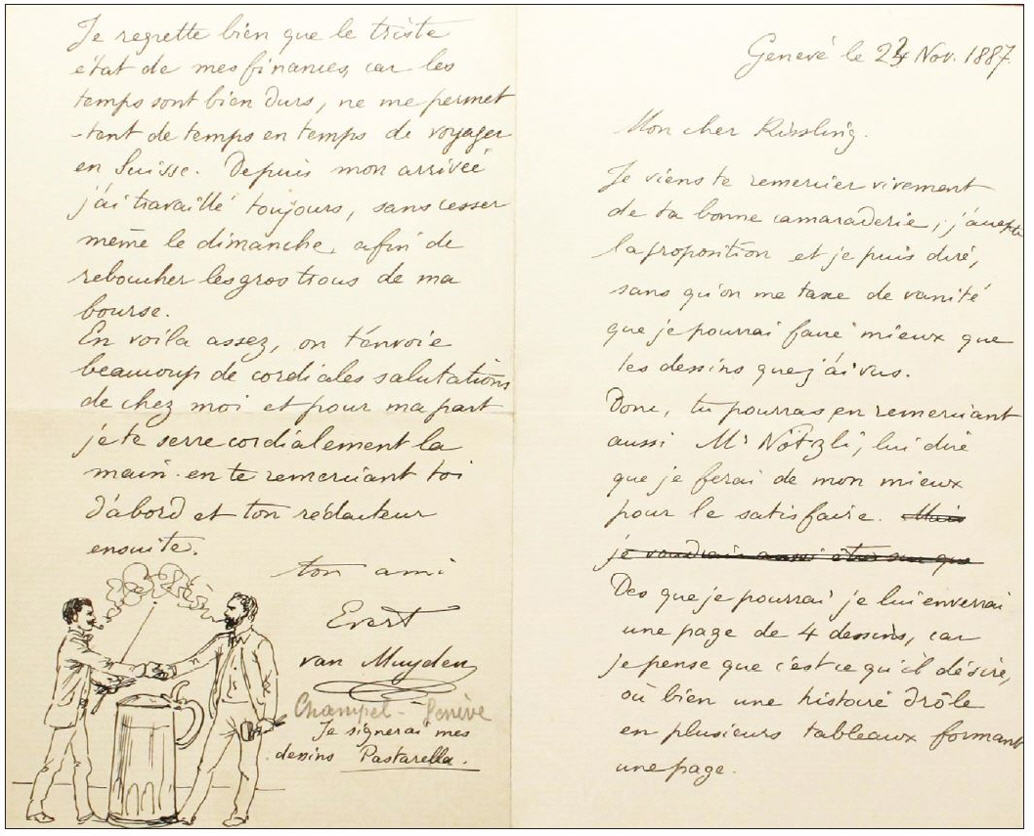 Genevé le 24 Nov. 1887.
Mon cher Rissling.
Je viens te remercier vivement
de ta bonne camaraderie; j'accepte
la proposition et je puis diré,
sans qu'on me taxe de vanité
que je pourrai faire mieux que
les dessins que j'ai vus.
Donc, tu pourras en remerciant
aussi Mr Nötzli, lui dire
que je ferai de mon mieux
pour le satisfaire. Mais
je voudrais aussi être sur que
Des que je pourrai je lui enverrai
une page de 4 dessins, car
je pense que c'est ce qu'il désire,
où bien une histoire drôle
en plusieurs tableaux formant
une page.
Je regrette bien que le triste
état de mes finances, car les
temps sont bien durs, ne me permet
-tent de temps en temps de voyager
en Suisse. Depuis mon arrivée
j'ai travaillé toujours, sans cesser
même le dimanche afin de
reboucher les gros trous de ma
bourse.
En voila assez, on t'envoie
beaucoup de cordiales salutations
de chez moi et pour ma part
je te serre cordialement la
main en te remerciant toi
d'abord et ton rédacteur
ensuite.
ton ami
Evert
van Muyden
Champel - Genève
Je signerai mes
dessins Pastarella.